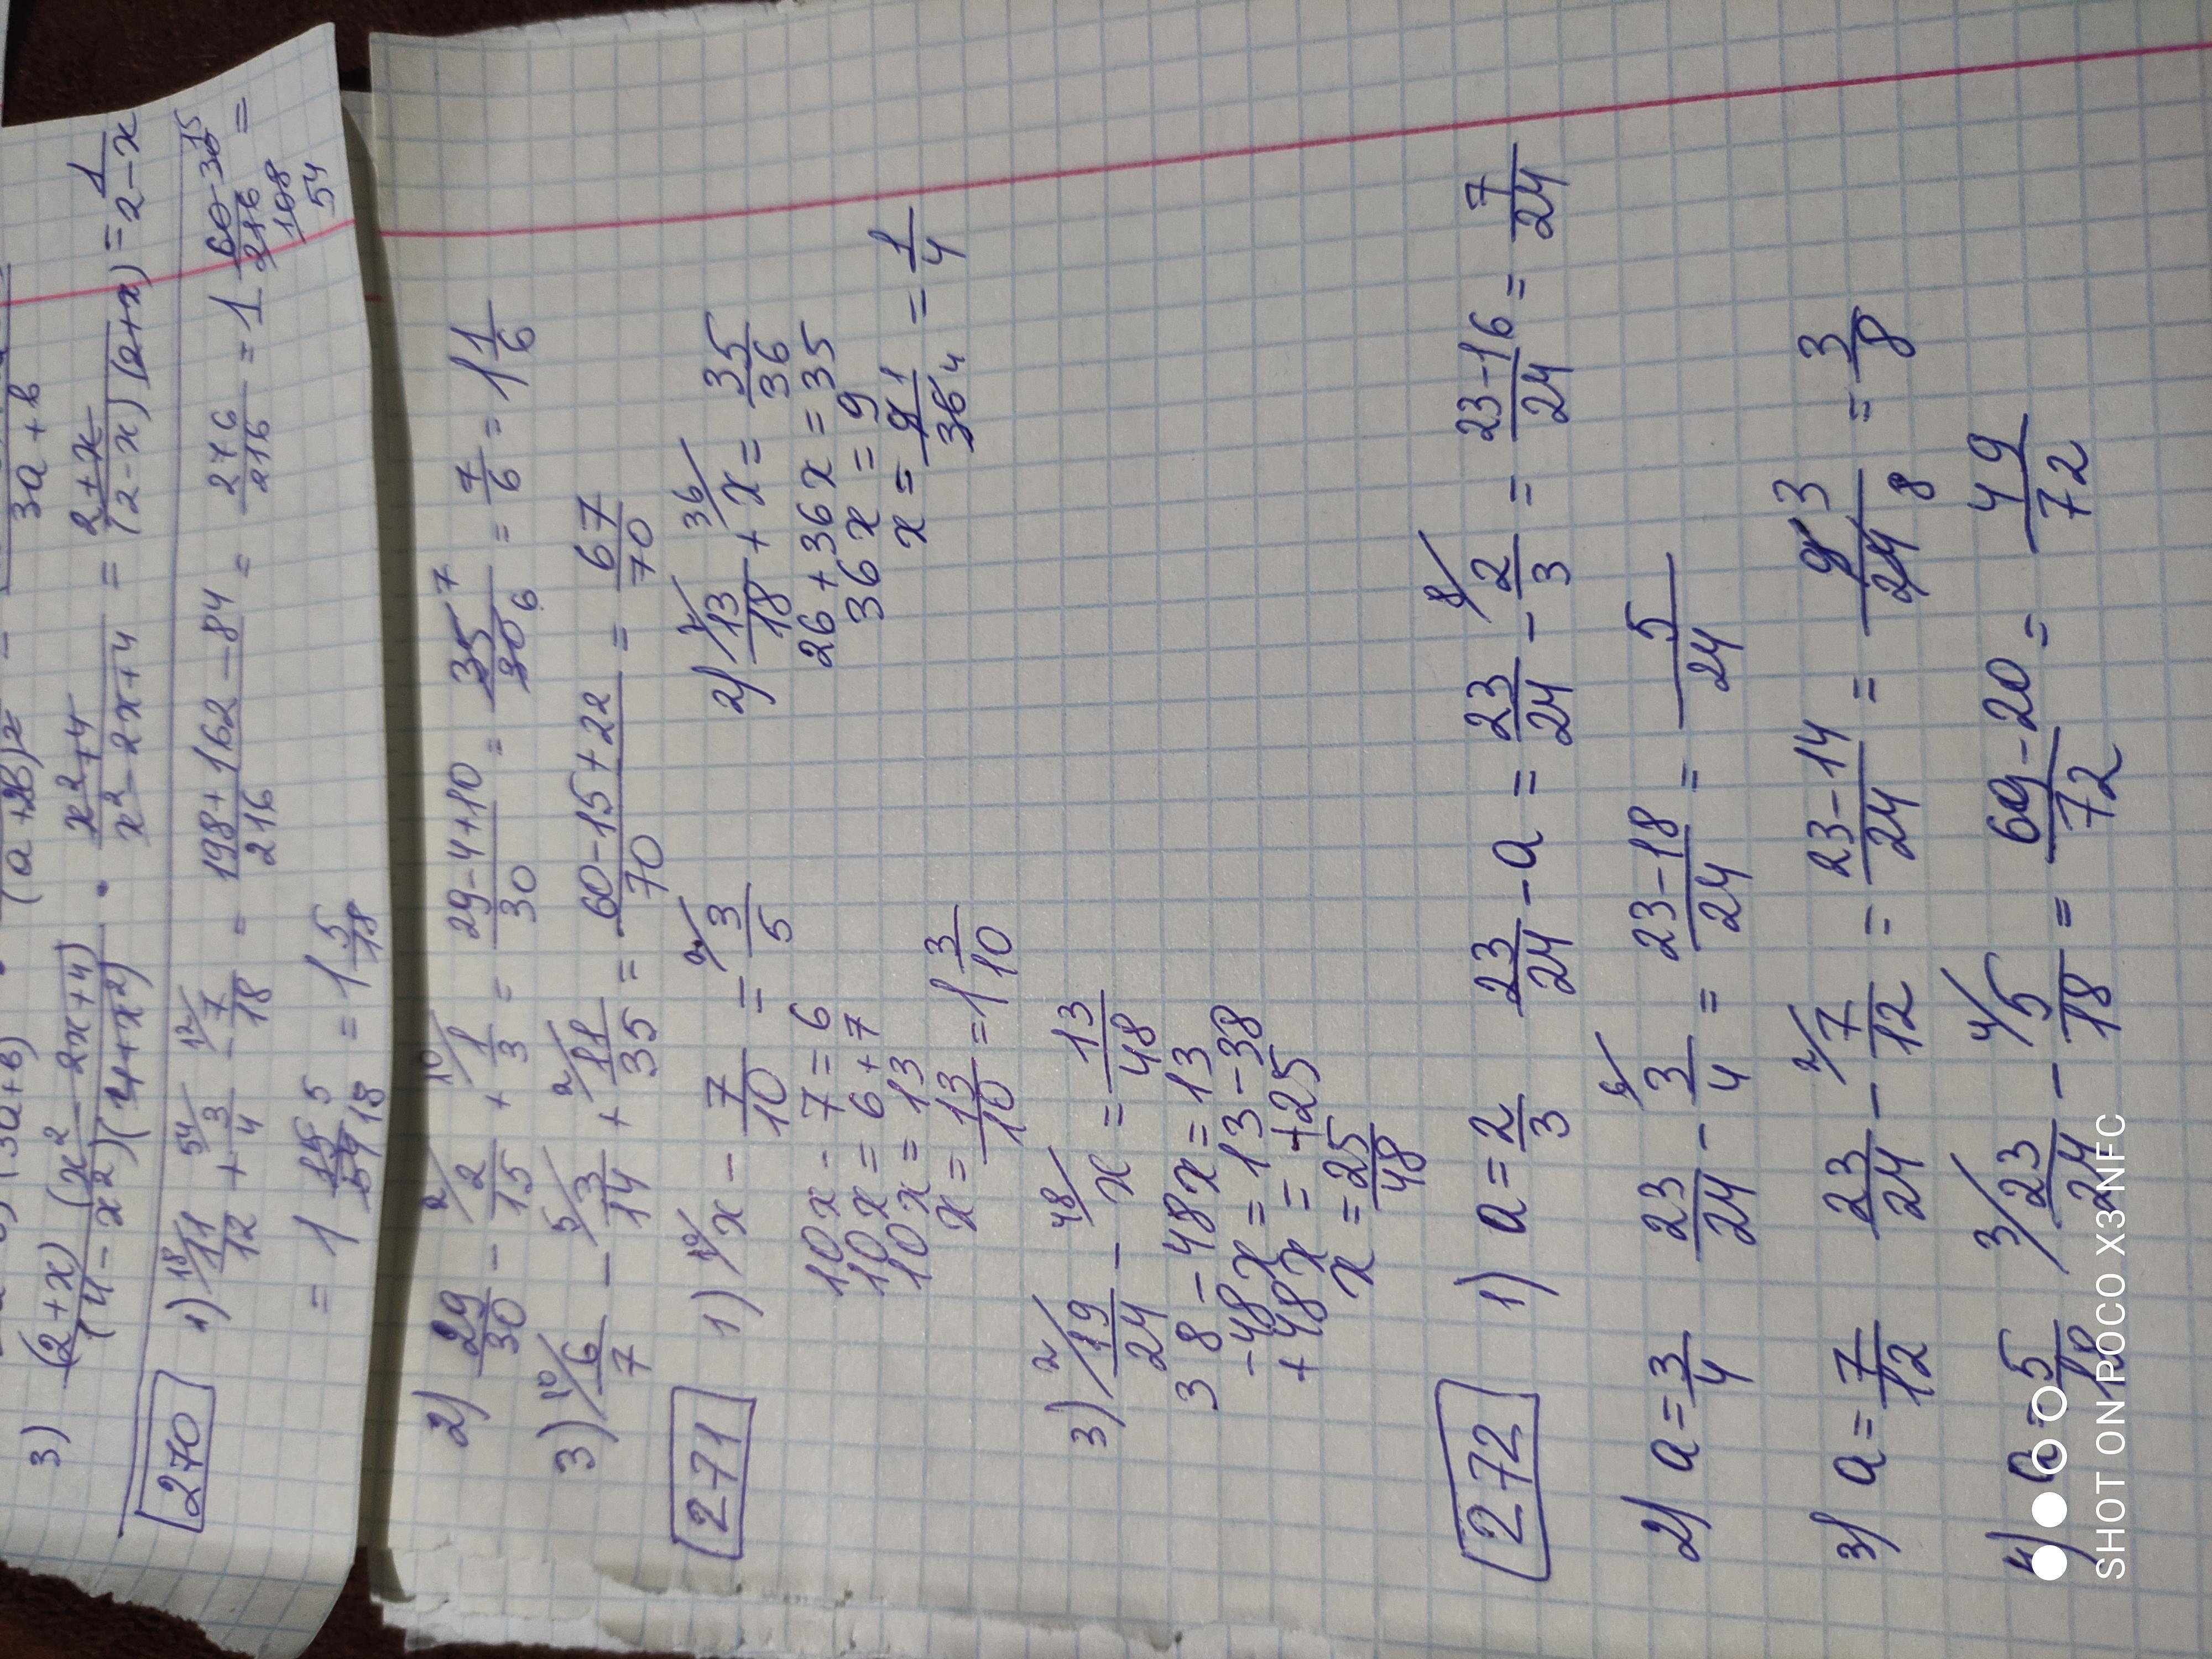 3a + b
3) (2+x)(x² - 2x+4) / (4 - x²)(4+x²) · x²+4 / x² - 2x+4 = 2+x / (2-x)(2+x) = 1 / 2-x
270 1) 18/ 11/12 + 54/ 3/4 - 12/ 7/18 = 198+162-84 / 216 = 276/216 = 1 60 30 15 / 216 108 54 =
= 1 15 5 / 54 18 = 1 5/18
2) 29/30 - 2/ 2/15 + 10/ 1/3 = 29-4+10 / 30 = 35 7 / 30 6 = 7/6 = 1 1/6
3) 10/ 6/7 - 5/ 3/14 + 2/ 11/35 = 60-15+22 / 70 = 67/70
271 1) 10/ x - 7/10 = 2/ 3/5
10x - 7 = 6
10x = 6+7
10x = 13
x = 13/10 = 1 3/10
2) 2/ 13/18 + 36/ x = 35/36
26 + 36x = 35
36x = 9
x = 9 1 / 36 4 = 1/4
3) 2/ 19/24 - 48/ x = 13/48
38 - 48x = 13
-48x = 13-38
+48x = +25
x = 25/48
272 1) a = 2/3 23/24 - a = 23/24 - 8/ 2/3 = 23-16 / 24 = 7/24
2) a = 3/4 23/24 - 6/ 3/4 = 23-18 / 24 = 5/24
3) a = 7/12 23/24 - 2/ 7/12 = 23-14 / 24 = 9 3 / 24 8 = 3/8
4) a = 5/18 3/ 23/24 - 4/ 5/18 = 69-20 / 72 = 49/72
SHOT ON POCO X3 NFC